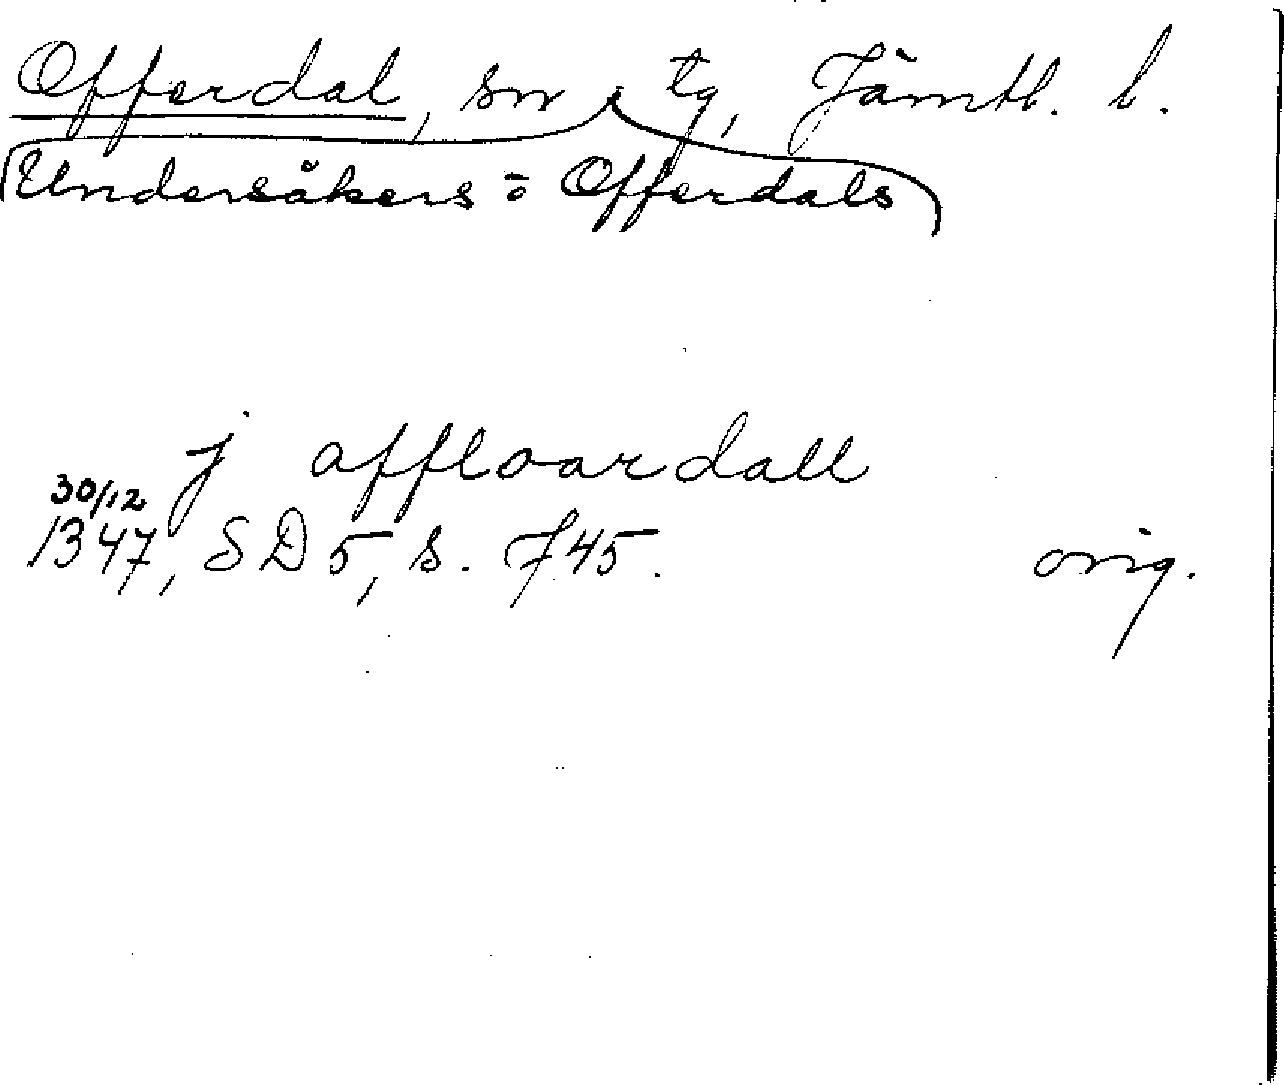 Offerdal, sn tg, Jämtl. l.
Undersåkers o Offerdals
j offloardall
30/12
1347, SD 5, s. 745. orig.